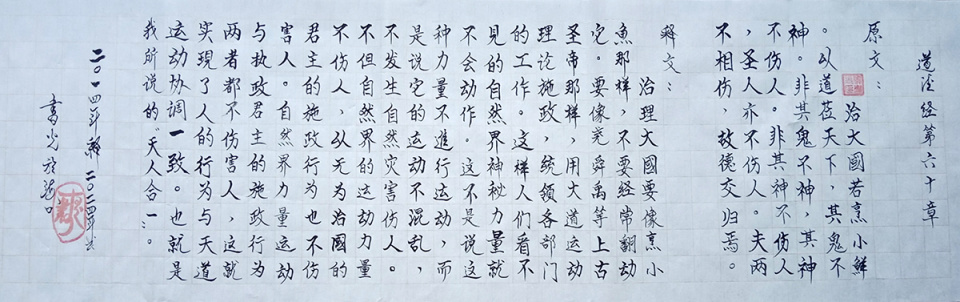 道德经第六十章
原文：
治大國若烹小鮮
。以道莅天下，其鬼不
神。非其鬼不神，其神
不伤人。非其神不伤人
，圣人亦不伤人。夫两
不相伤，故德交归焉。
释文：
治理大國要像烹小
魚那样，不要经常翻动
它。要像尧舜禹等上古
圣帝那样，用大道运动
理论施政，统领各部门
的工作。这样人们看不
见的自然界神秘力量就
不会动作。这不是说这
种力量不進行运动，而
是说它的运动不混乱，
不发生自然灾害伤人。
不但自然界的运动力量
不伤人，以无为治國的
君主的施政行为也不伤
害人。自然界力量运动
与执政君主的施政行为
两者都不伤害人，这就
实現了人的行为与天道
运动协调一致。也就是
我所说的“天人合一”。
二〇一四年释 二〇二四年书